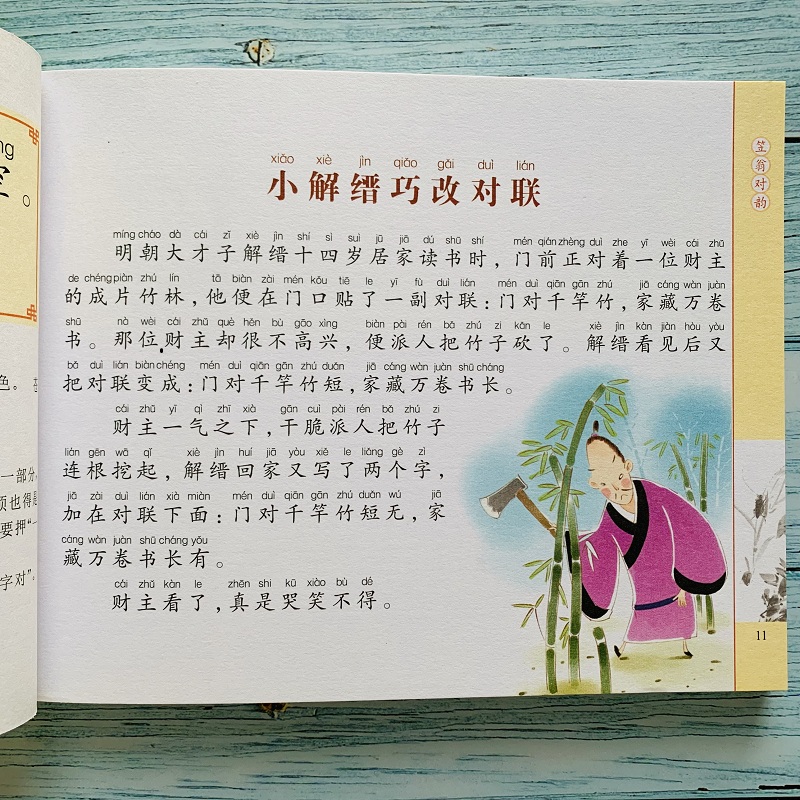 ng
。
色。
一部分
页也得是
要押“一
字对”。
xiǎo xiè jìn qiǎo gǎi duì lián
小解缙巧改对联
míng cháo dà cái zǐ xiè jìn shí sì suì jū jiā dú shū shí mén qián zhèng duì zhe yī wèi cái zhǔ
明朝大才子解缙十四岁居家读书时，门前正对着一位财主
de chéng piàn zhú lín tā biàn zài mén kǒu tiē le yī fù duì lián mén duì qiān gān zhú jiā cáng wàn juàn
的成片竹林，他便在门口贴了一副对联：门对千竿竹，家藏万卷
shū nà wèi cái zhǔ què hěn bù gāo xìng biàn pài rén bǎ zhú zi kǎn le xiè jìn kàn jiàn hòu yòu
书。那位财主却很不高兴，便派人把竹子砍了。解缙看见后又
bǎ duì lián biàn chéng mén duì qiān gān zhú duǎn jiā cáng wàn juàn shū cháng
把对联变成：门对千竿竹短，家藏万卷书长。
cái zhǔ yī qì zhī xià gān cuì pài rén bǎ zhú zi
财主一气之下，干脆派人把竹子
lián gēn wā qǐ xiè jìn huí jiā yòu xiě le liǎng gè zì
连根挖起，解缙回家又写了两个字，
jiā zài duì lián xià miàn mén duì qiān gān zhú duǎn wú jiā
加在对联下面：门对千竿竹短无，家
cáng wàn juàn shū cháng yǒu
藏万卷书长有。
cái zhǔ kàn le zhēn shi kū xiào bù dé
财主看了，真是哭笑不得。
笠翁对韵
11